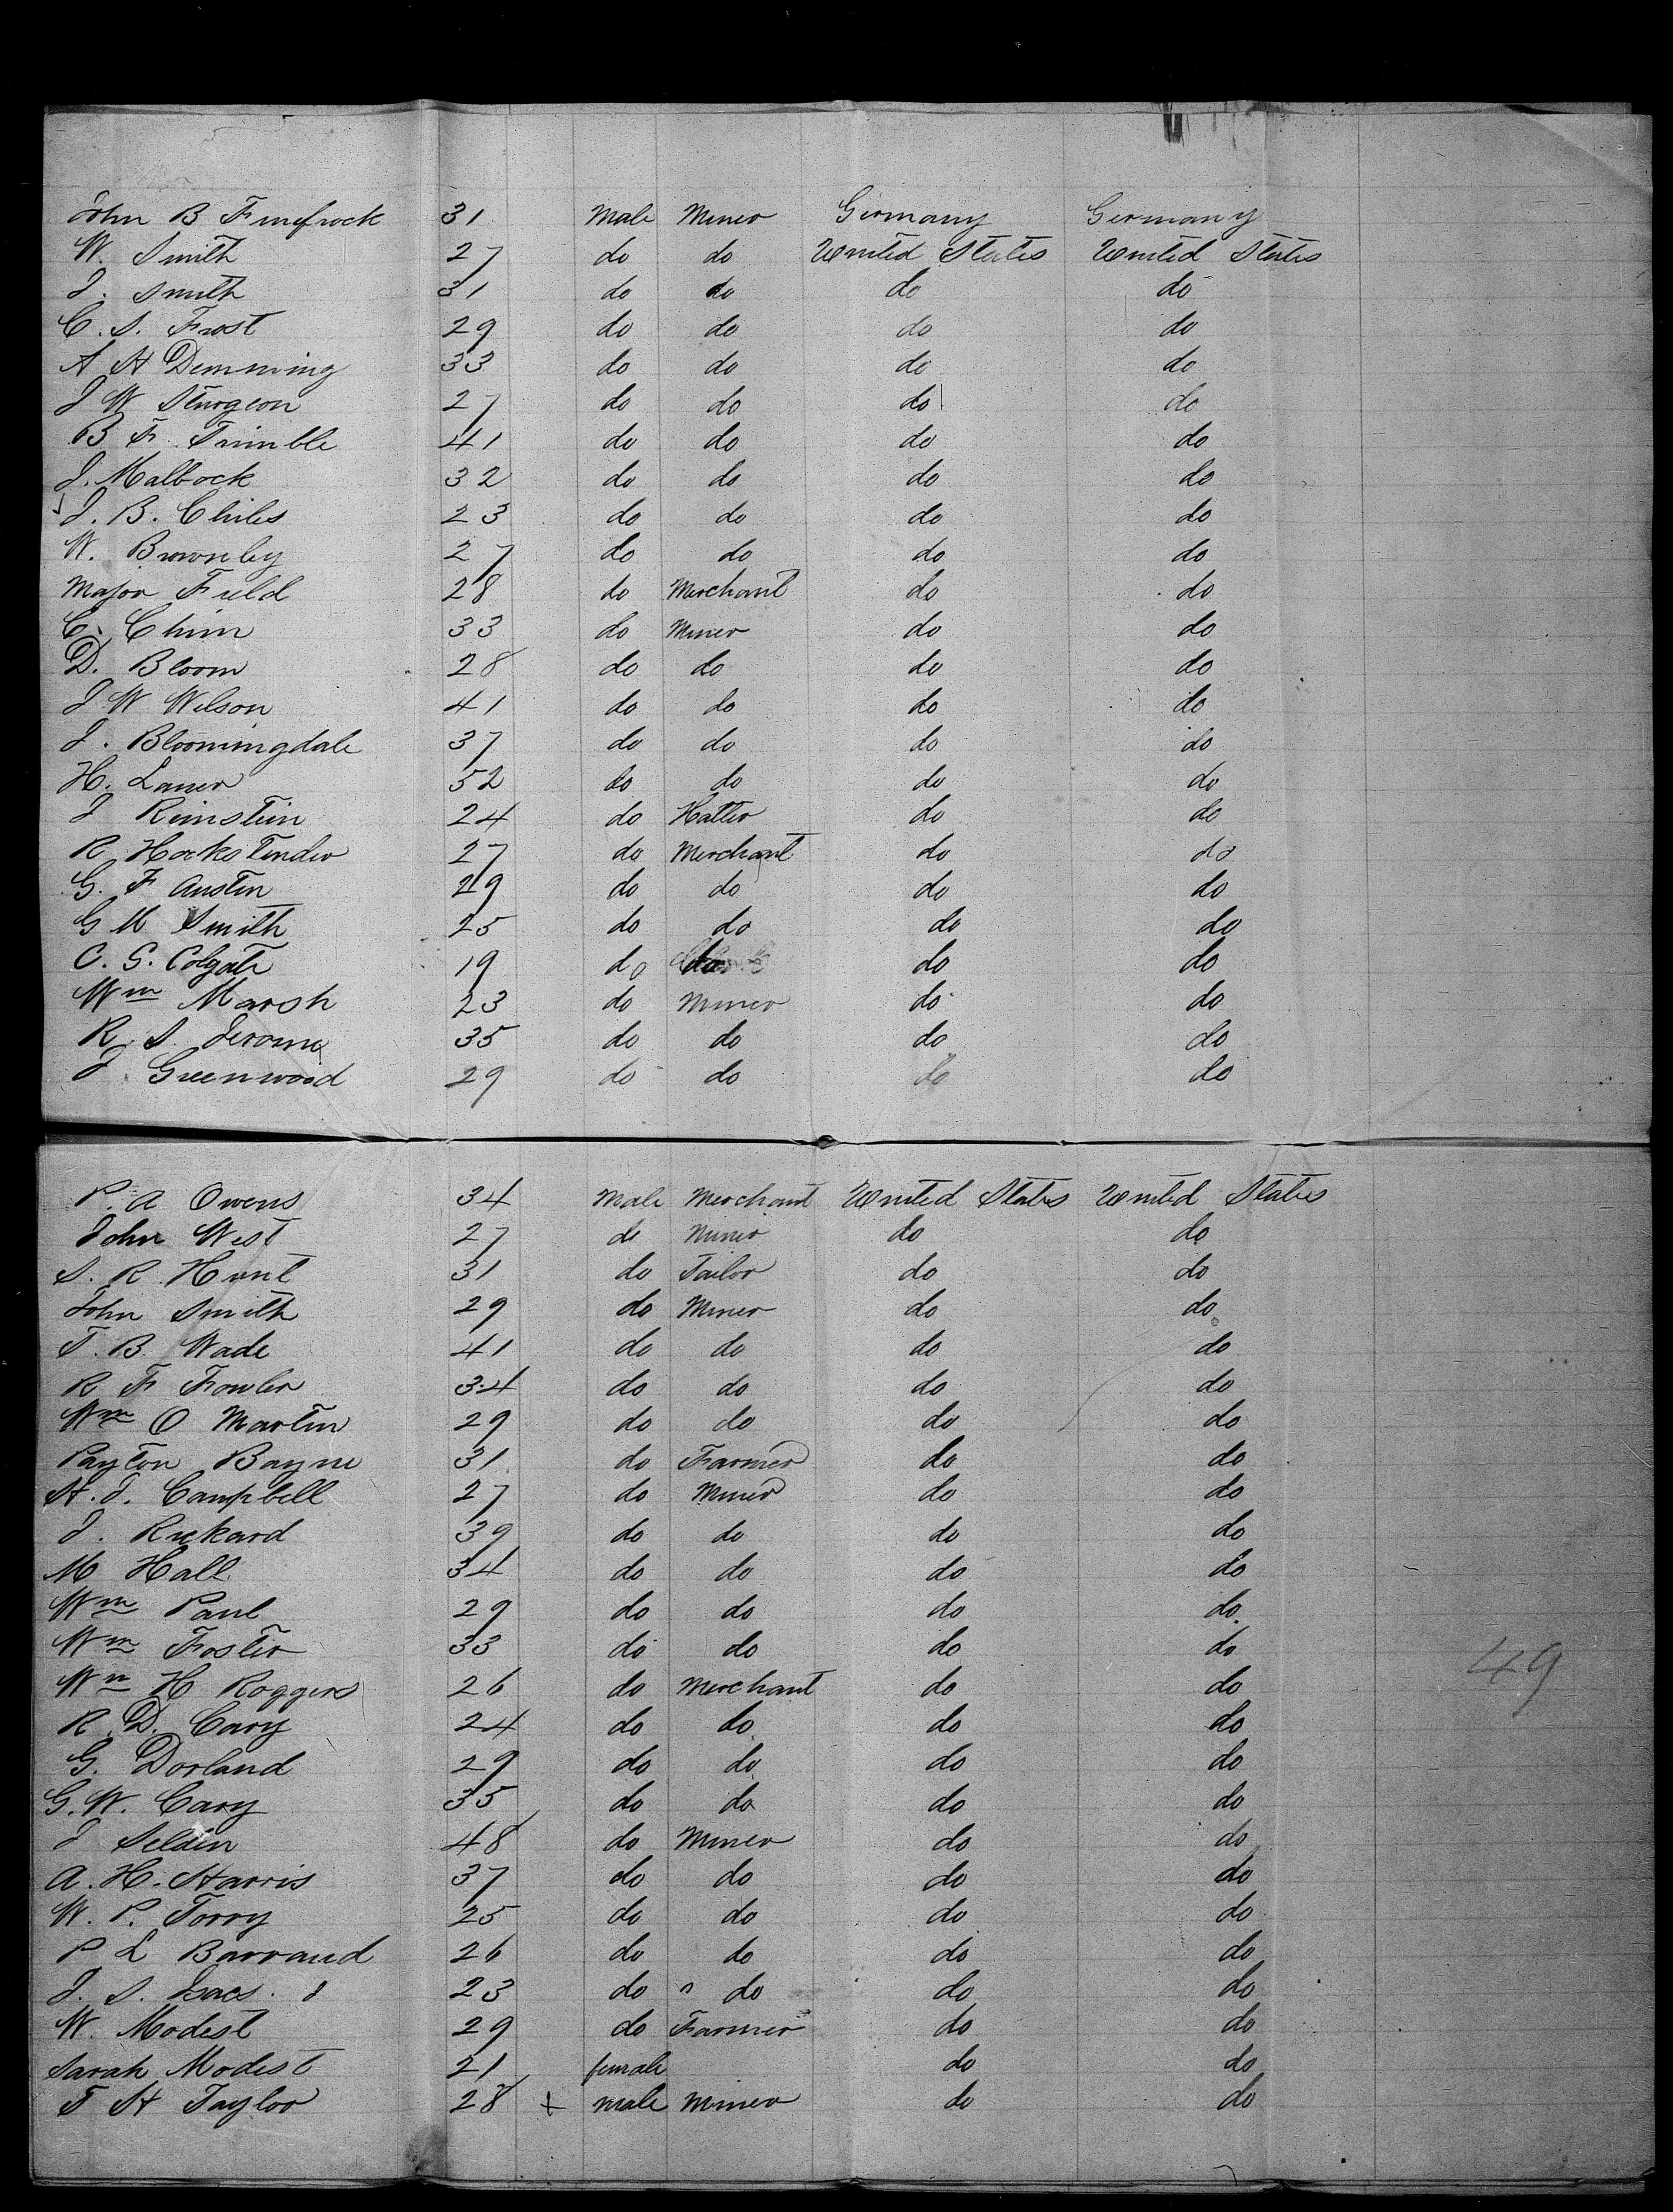 John B Finefrock 31 Male Miner Germany Germany
W. Smith 27 do do United States United States
J. Smith 31 do do do do
C. S. Frost 29 do do do do
A H Demming 33 do do do do
J W Sturgeon 27 do do do do
B F. Trimble 41 do do do do
J. Malbock 32 do do do do
J. B. Chiles 23 do do do do
W. Brownley 27 do do do do
Major Field 28 do Merchant do do
C. Chinn 33 do Miner do do
D. Bloom 28 do do do do
J W Wilson 41 do do do do
J. Bloomingdale 37 do do do do
H. Laner 52 do do do do
J Rimstein 24 do Hatter do do
R Hockstinder 27 do Merchant do do
G. F Austin 29 do do do do
G M Smith 25 do do do do
C. G. Colgate 19 do do do do
Wm Marsh 23 do Miner do do
R. S. Jerome 35 do do do do
J Greenwood 29 do do do do
P. A Owens 34 Male Merchant United States United States
John West 27 do Miner do do
S. R. Hunt 31 do Tailor do do
John Smith 29 do Miner do do
T. B. Wade 41 do do do do
R F Fowler 34 do do do do
Wm O Martin 29 do do do do
Payton Bayne 31 do Farmer do do
H. J. Campbell 27 do Miner do do
J. Rickard 39 do do do do
M Hall 34 do do do do
Wm Paul 29 do do do do
Wm Foster 33 do do do do
Wm H Roggers 26 do Merchant do do
R. D. Cary 24 do do do do
G. Dorland 29 do do do do
G. W. Cary 35 do do do do
J Selden 48 do Miner do do
A. H. Harris 37 do do do do
W. P. Torry 25 do do do do
P L Barraud 26 do do do do
J. S. Isacs 23 do do do do
W. Modest 29 do Farmer do do
Sarah Modest 21 female do do
T H Taylor 28 x male Miner do do
49